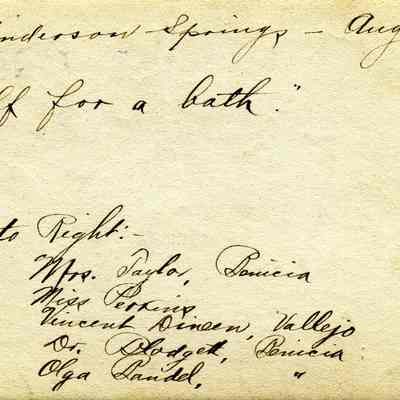 nderson Springs – Aug
lf for a bath."
to Right:-
Mrs. Taylor, Benicia
Miss Perkins
Vincent Dineen, Vallejo
Dr. Blodgett, Benicia
Olga Dandel, "